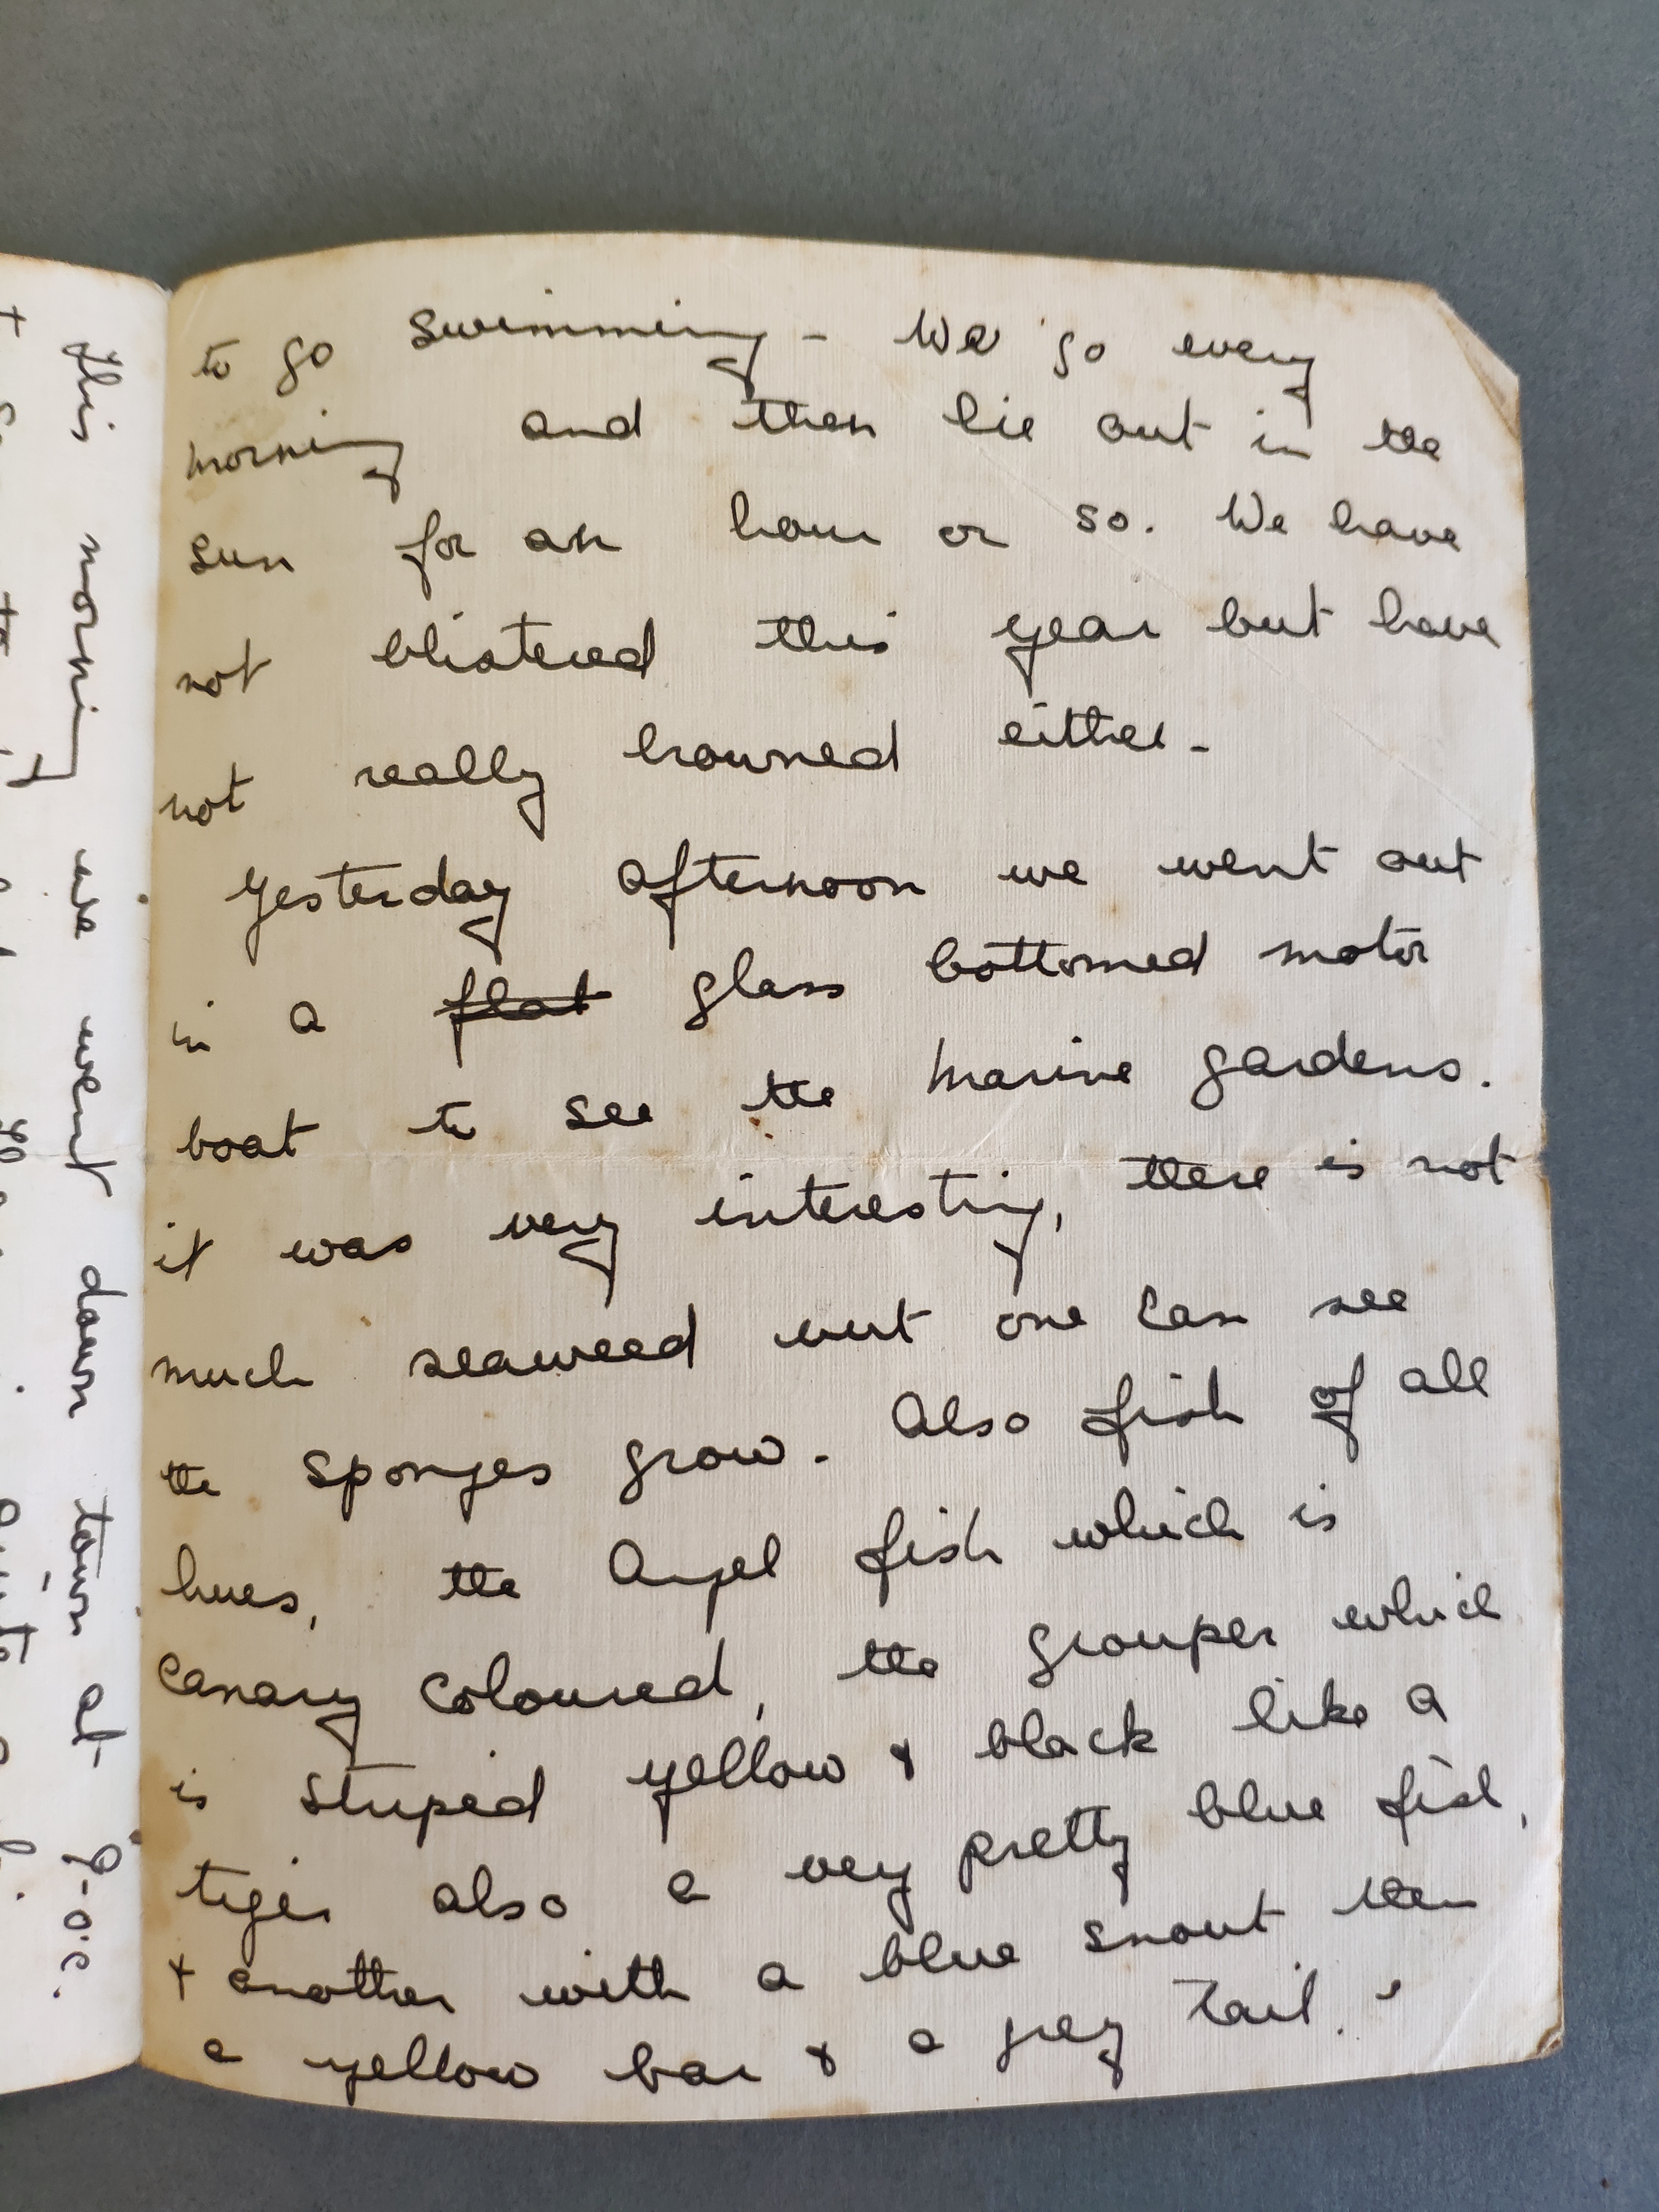 to go swimming - We go every
morning and then lie out in the
sun for an hour or so. We have
not blistered this year but have
not really browned either -
Yesterday afternoon we went out
in a flat glass bottomed motor
boat to see the marine gardens.
it was very interesting, there is not
much seaweed but one can see
the sponges grow. Also fish of all
hues, the Angel fish which is
canary coloured, the grouper which
is striped yellow & black like a
tiger also a very pretty blue fish,
& another with a blue snout then
a yellow bar & a grey tail.
this morning we went down town at 9-o.c.